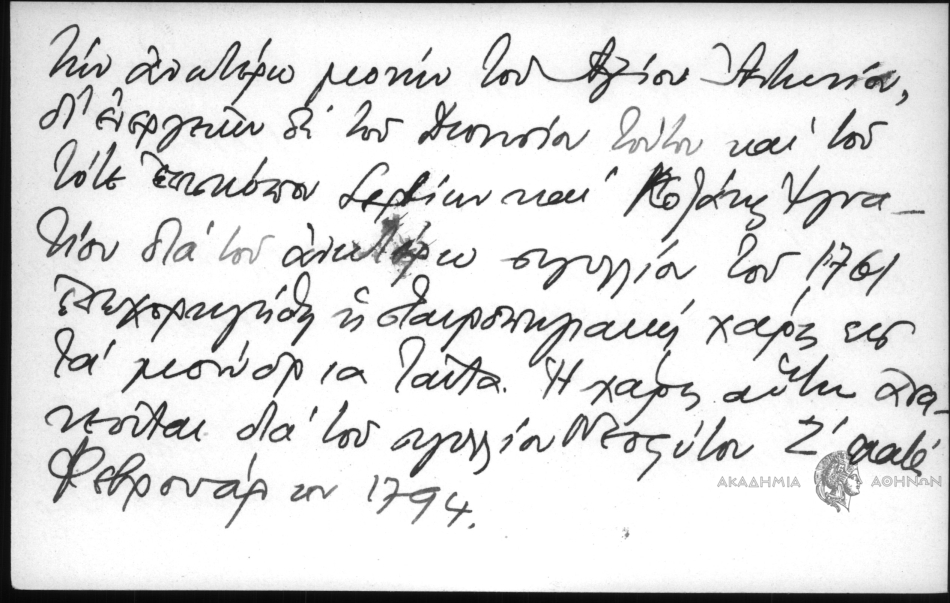 τὴν ἀνωτέρω μονὴν τοῦ Ἁγίου Ἀντωνίου,
δι' ἐνεργειῶν δὲ τοῦ Διονυσίου τούτου καὶ τοῦ
τότε ἐπισκόπου Σερβίων καὶ Κοζάνης Ἰγνα-
τίου διὰ τοῦ ἀνωτέρω σιγιλλίου τοῦ 1761
ἐπεχορηγήθη ἡ σταυροπηγιακὴ χάρις εἰς
τὰ μονύδρια ταῦτα. Ἡ χάρις αὕτη ἀνα-
νεοῦται διὰ τοῦ σιγιλλίου Νεοφύτου Ζ' κατὰ
Φεβρουάριον 1794.
ΑΚΑΔΗΜΙΑ ΑΘΗΝΩΝ